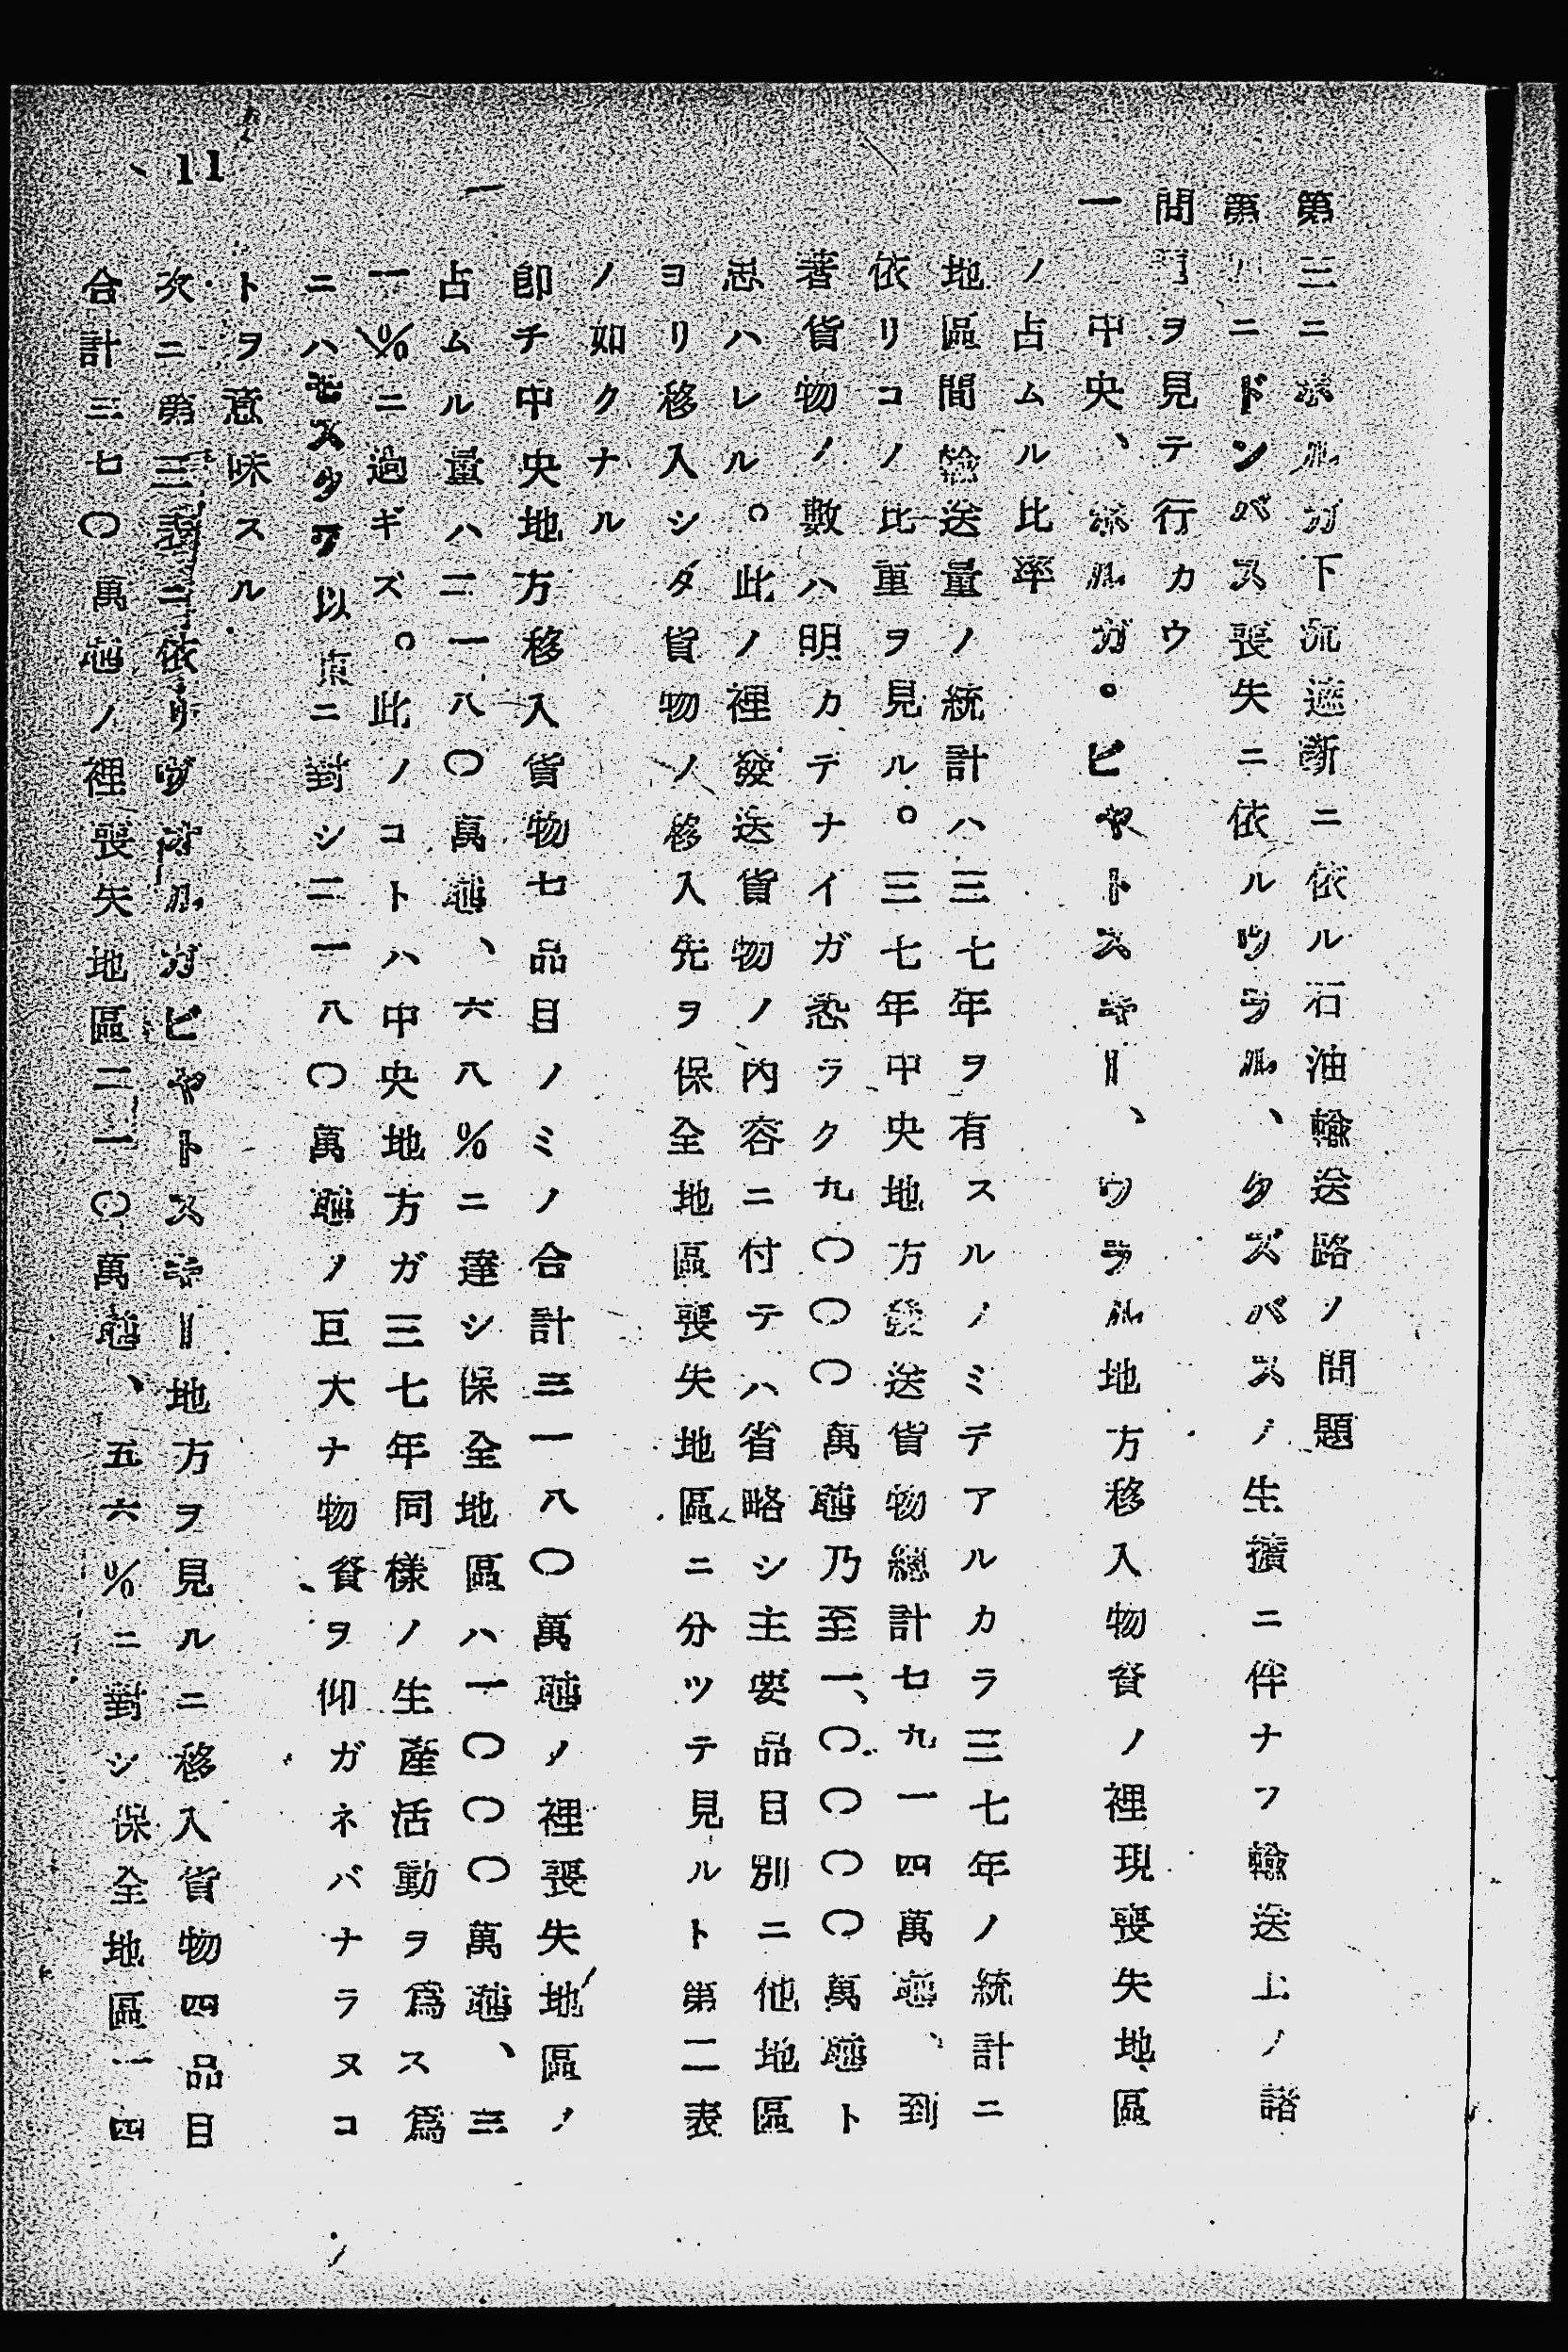 第三ニボルガ下流遮断ニ依ル石油輸送路ノ問題
第八ニドンバス喪失ニ依ルウラル、クズバスノ生擴ニ伴ナフ輸送上ノ諸
問門ヲ見テ行カウ
一 中央、ボルガ・ビヤトスキー、ウラル地方移入物資ノ裡現喪失地區
ノ占ムル比率
地區間輸送量ノ統計ハ三七年ヲ有スルノミデアルカラ三七年ノ統計ニ
依リコノ比重ヲ見ル。三七年中央地方發送貨物總計七九一四萬瓲、到
著貨物ノ數ハ明カデナイガ恐ラク九〇〇〇萬瓲乃至一、〇〇〇〇萬瓲ト
思ハレル。此ノ裡發送貨物ノ內容ニ付テハ省略シ主要品目別ニ他地區
ヨリ移入シタ貨物ノ移入先ヲ保全地區喪失地區ニ分ツテ見ルト第二表
ノ如クナル
一 卽チ中央地方移入貨物七品目ノミノ合計三一八〇萬瓲ノ裡喪失地區ノ
占ムル量ハ二一八〇萬瓲、六八%ニ達シ保全地區ハ一〇〇〇萬瓲、三
一%ニ過ギズ。此ノコトハ中央地方ガ三七年同樣ノ生產活動ヲ爲ス爲
ニハモスクワ以東ニ對シ二一八〇萬瓲ノ巨大ナ物資ヲ仰ガネバナラヌコ
トヲ意味スル
次ニ第三表ニ依リヴオルガビヤトスキー地方ヲ見ルニ移入貨物四品目
合計三七〇萬瓲ノ裡喪失地區二一〇萬瓲、五六%ニ對シ保全地區一四
11